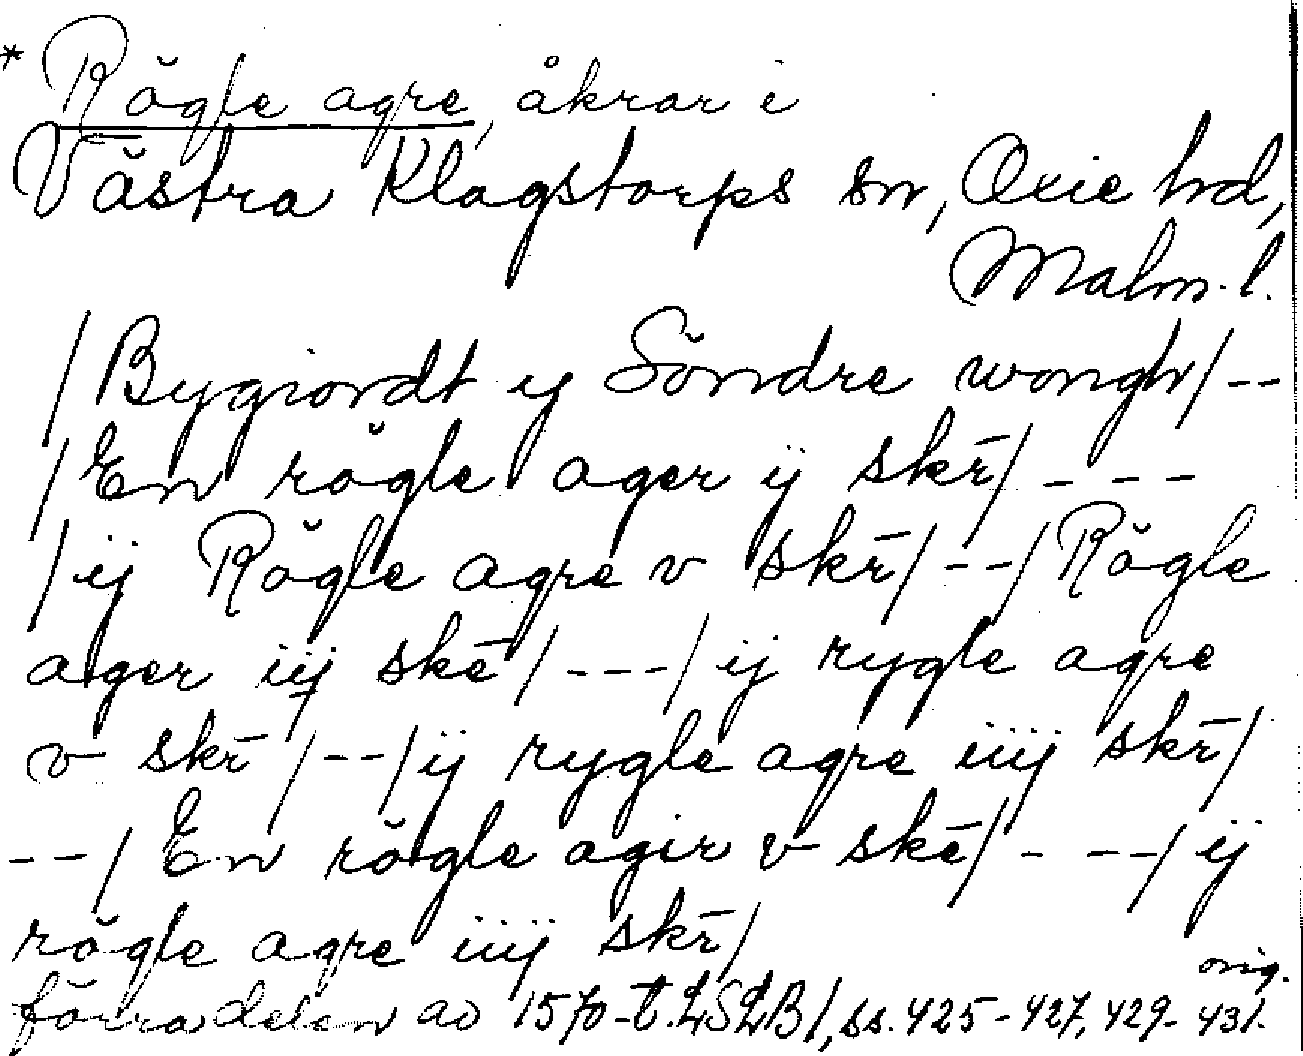 * Rögle agre, åkrar i
Västra Klagstorps sn, Oxie hd,
Malm. l.
/Bygiordt ij Söndre wongh/--
/En rögle ager ij skr̄/- - -
/ij Rögle agre v skr̄/--/Rögle
ager iij skr̄/---/ij rygle agre
v skr̄/--/ij rygle agre iiij skr̄/
--/En rögle agir v skr̄/- --/ij
rögle agre iiij skr̄/
orig.
förra delen av 1570-t. LSLB 1, ss. 425-427, 429-431.